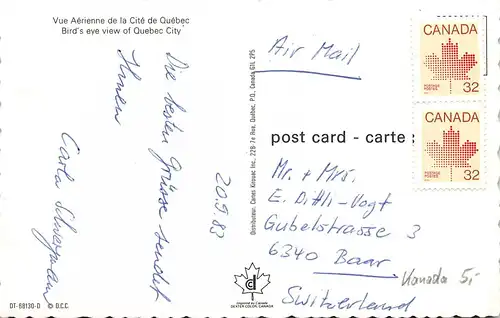 Vue Aérienne de la Cité de Québec
Bird's eye view of Quebec City
Die besten Grüsse sendet
Ihnen
Carla Schwegmann
20.9.83
DT-68130-D © D.C.C.
Distributeur: Cartes Kinouac Inc., 228-7e Rue, Québec, P.Q., Canada G1L 2P5
Air Mail
post card - carte :
Mr. + Mrs.
E. Dittli-Vogt
Gubelstrasse 3
6340 Baar
Switzerland
Kanada 5,-
CANADA
POSTAGE
POSTES
32
CANADA
POSTAGE
POSTES
32
dc
DEXTER COLOR, CANADA